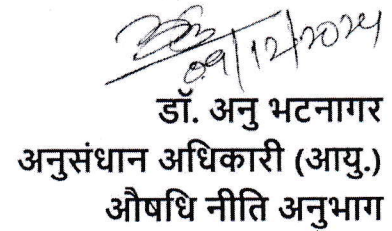 09/12/2024
डॉ. अनु भटनागर
अनुसंधान अधिकारी (आयु.)
औषधि नीति अनुभाग